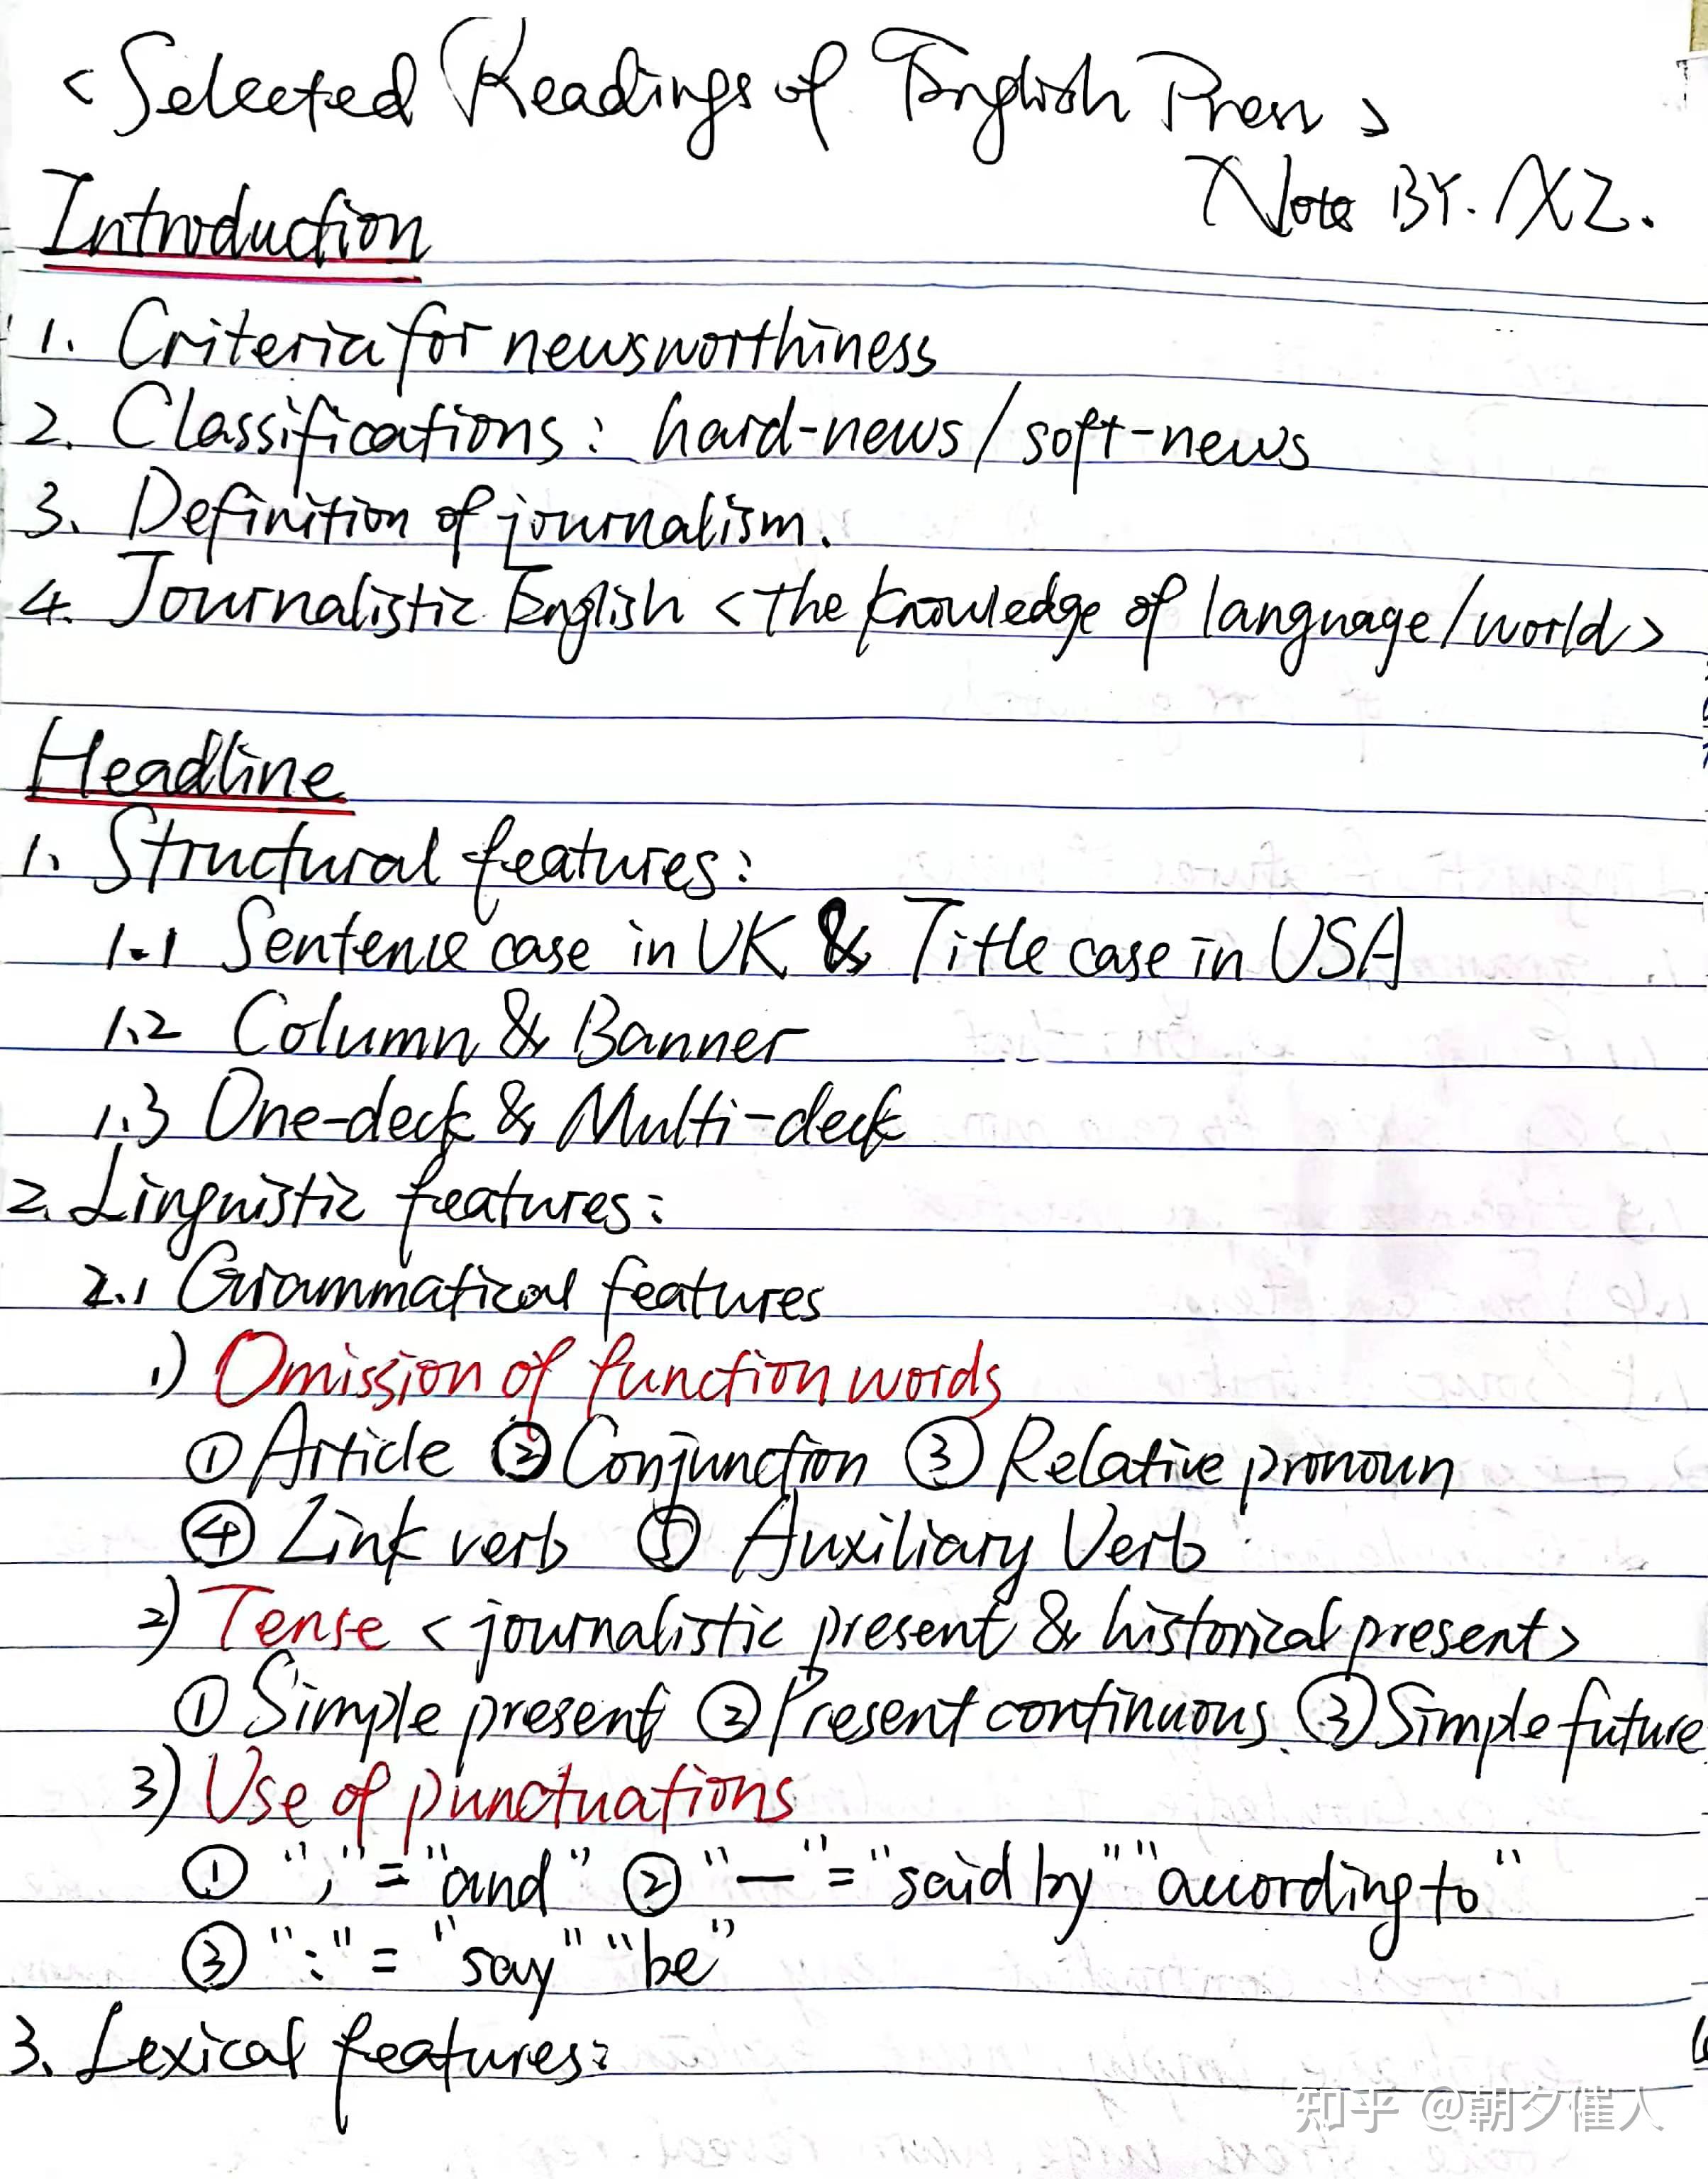 <Selected Readings of English Press>
Note BY. XZ.
Introduction
1. Criteria for newsworthiness
2. Classifications: hard-news/soft-news
3. Definition of journalism.
4. Journalistic English <the knowledge of language/world>
Headline
1. Structural features:
1.1 Sentence case in UK & Title case in USA
1.2 Column & Banner
1.3 One-deck & Multi-deck
2. Linguistic features:
2.1 Grammatical features
1) Omission of function words
① Article ② Conjunction ③ Relative pronoun
④ Link verb ⑤ Auxiliary Verb
2) Tense <journalistic present & historical present>
① Simple present ② Present continuous ③ Simple future
3) Use of punctuations
① "," = "and" ② "—" = "said by" "according to"
③ ":" = "say" "be"
3. Lexical features:
知乎 @朝夕催人